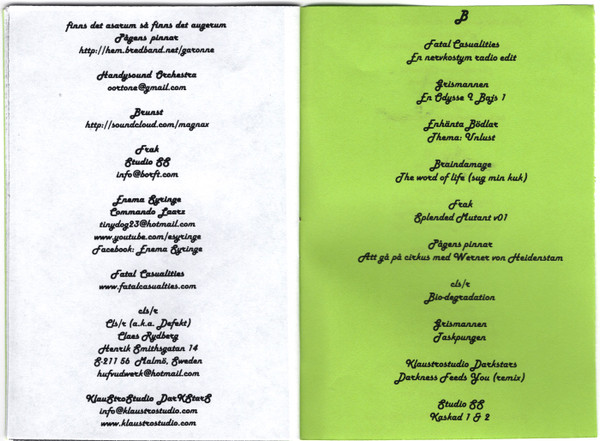 finns det asarum så finns det augerum
Pågens pinnar
http://hem.bredband.net/garonne
Handysound Orchestra
oortone@gmail.com
Brunst
http://soundcloud.com/magnax
Frak
Studio SS
info@borft.com
Enema Syringe
Commando Laarz
tinydog23@hotmail.com
www.youtube.com/esyringe
Facebook: Enema Syringe
Fatal Casualities
www.fatalcasualties.com
cls/r
Cls/r (a.k.a. Defekt)
Claes Rydberg
Henrik Smithsgatan 14
S-211 56 Malmö, Sweden
hufvudwerk@hotmail.com
KlauStroStudio DarKStarS
info@klaustrostudio.com
www.klaustrostudio.com
B
Fatal Casualities
En nervkostym radio edit
Grismannen
En Odysse I Bajs 1
Enhänta Bödlar
Thema: Unlust
Braindamage
The word of life (sug min kuk)
Frak
Splended Mutant v01
Pågens pinnar
Att gå på cirkus med Werner von Heidenstam
cls/r
Bio-degradation
Grismannen
Taskpungen
Klaustrostudio Darkstars
Darkness Feeds You (remix)
Studio SS
Kaskad 1 & 2